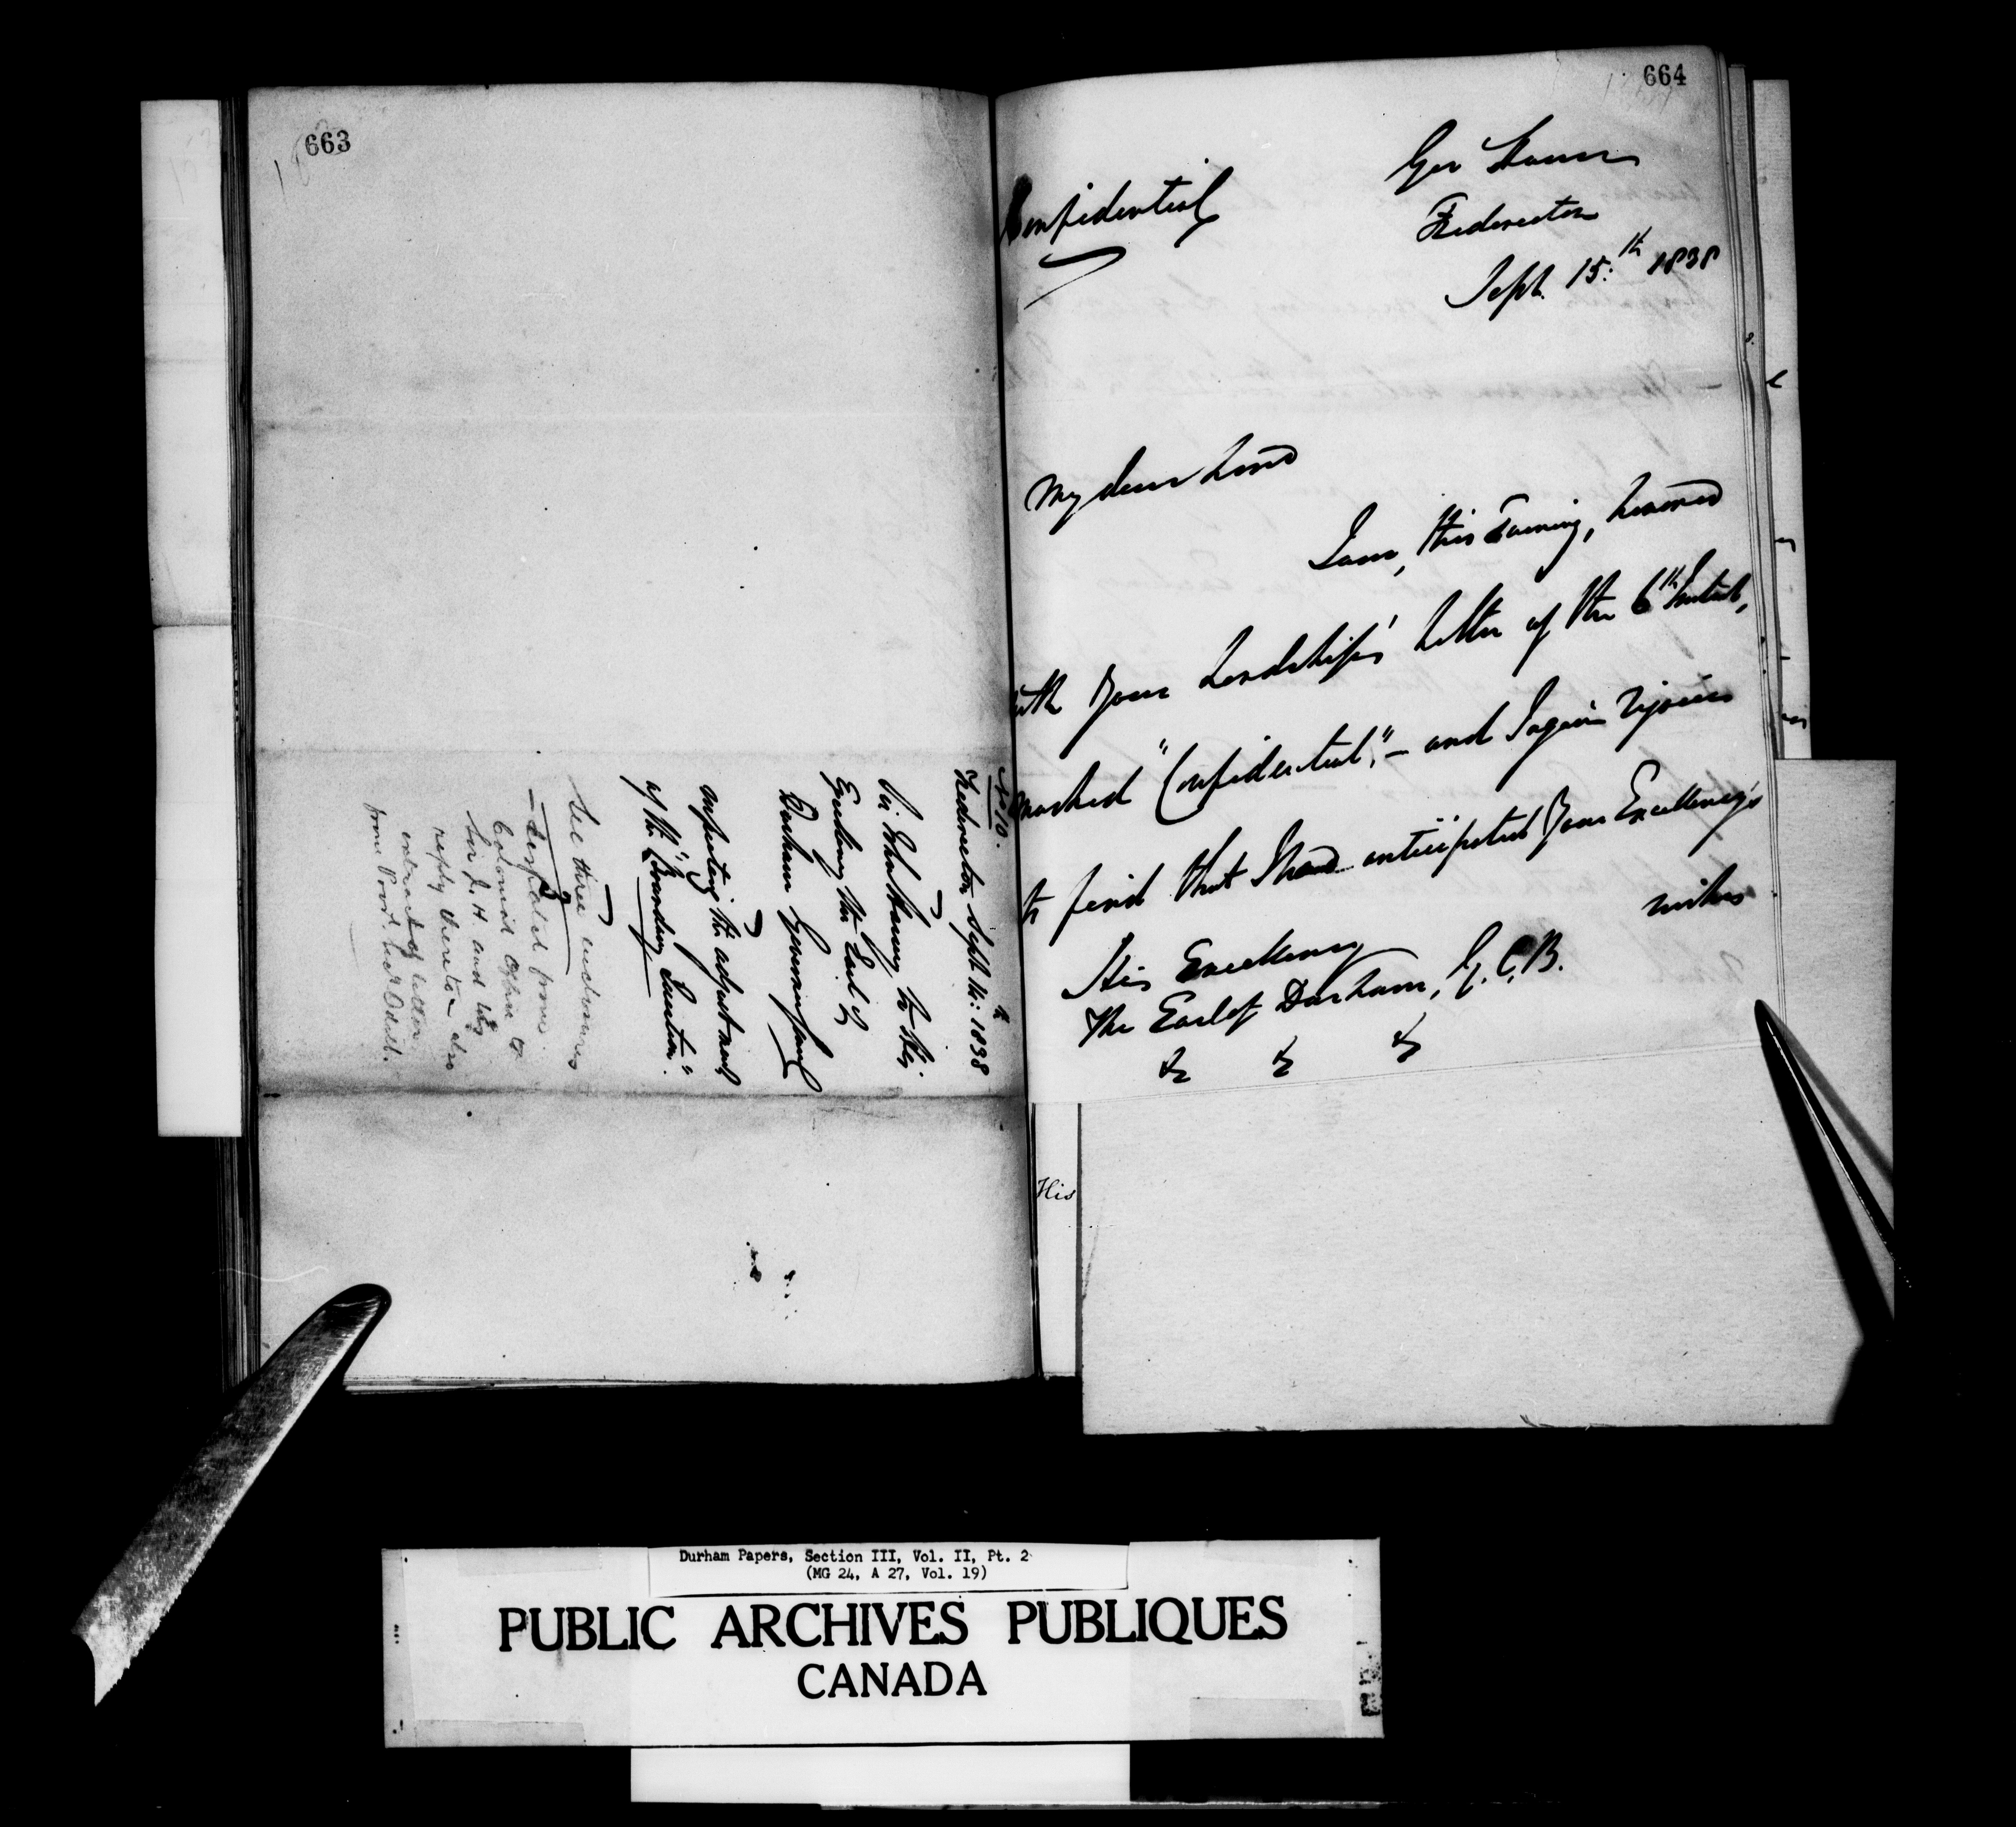 663
No 10.
Fredericton Septr 14th: 1838
Sir John Harvey to His
Excellency the Earl of
Durham Governor General
respecting the adjustment
of the "Boundary Question"
See three enclosures
Despatch from
Colonial Office to
Sir J. H. and his
reply thereto - also
extract of letter
from Provl. Secy Odell.
664
Confidential
Gov House
Fredericton
Sept. 15:th 1838
My dear Lord
I am, this Evening, honored
with Your Lordship's Letter of the 6th Instant,
marked "Confidential", - and I again rejoice
to find that I had anticipated Your Excellency's
wishes
His Excellency
The Earl of Durham, G.C.B.
&c &c &c
His
Durham Papers, Section III, Vol. II, Pt. 2
(MG 24, A 27, Vol. 19)
PUBLIC ARCHIVES PUBLIQUES
CANADA